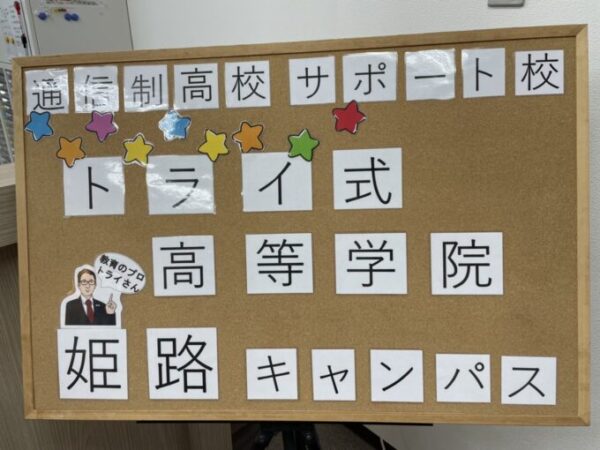 通信制高校サポート校
トライ式
高等学院
教育のプロ
トライさん
姫路キャンパス